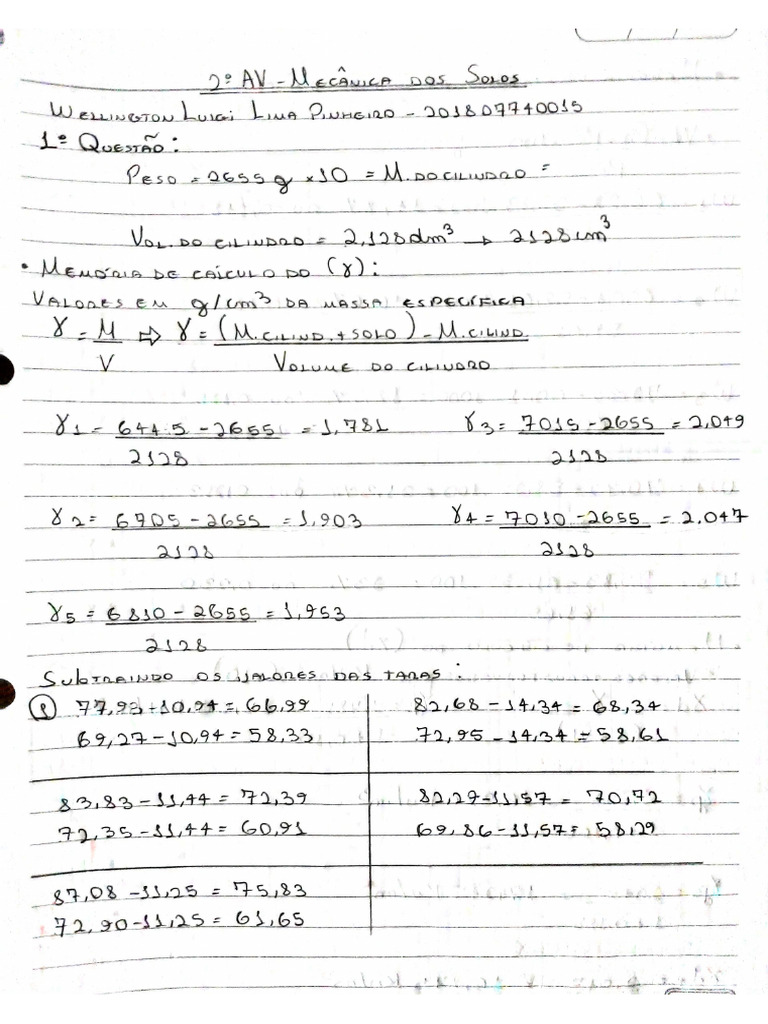 2º AV - MECÂNICA DOS SOLOS
WELLINGTON LUIGI LIMA PINHEIRO - 201807740015
1º QUESTÃO:
PESO = 2655g × 10 = M. DO CILINDRO =
VOL. DO CILINDRO = 2,128dm³ → 2128cm³
• MEMÓRIA DE CÁLCULO DO (γ):
VALORES EM g/cm³ DA MASSA ESPECÍFICA
γ = M ⇒ γ = (M. CILIND. + SOLO) - M. CILIND.
V VOLUME DO CILINDRO
γ1 = 6445 - 2655 = 1,781 γ3 = 7015 - 2655 = 2,049
2128 2128
γ2 = 6705 - 2655 = 1,903 γ4 = 7010 - 2655 = 2,047
2128 2128
γ5 = 6810 - 2655 = 1,953
2128
SUBTRAINDO OS VALORES DAS TARAS:
① 77,93 - 10,94 = 66,99 82,68 - 14,34 = 68,34
69,27 - 10,94 = 58,33 72,95 - 14,34 = 58,61
83,83 - 11,44 = 72,39 82,29 - 11,57 = 70,72
72,35 - 11,44 = 60,91 69,86 - 11,57 = 58,29
87,08 - 11,25 = 75,83
72,90 - 11,25 = 61,65